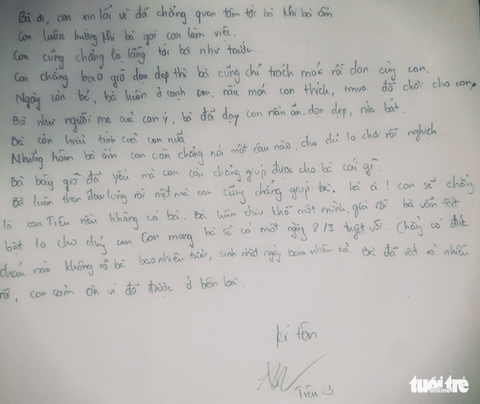 Bà ơi, con xin lỗi vì đã chẳng quan tâm tới bà khi bà ốm
Con luôn bướng khi bà gọi con làm việc.
Con cũng chẳng lo lắng tới bà như trước.
Con chẳng bao giờ dọn dẹp thì bà cũng chỉ trách móc rồi dọn cùng con.
Ngày còn bé, bà luôn ở cạnh con, nấu món con thích, mua đồ chơi cho con,
Bà như người mẹ của con ý, bà đã dạy con nấu ăn, dọn dẹp, rửa bát.
Bà còn hiểu tính con nữa
Những hôm bà ốm con còn chẳng nói một câu nào, cho chỉ lo chơi rồi nghịch
Bà bây giờ đã yếu mà con còn chẳng giúp được cho bà cái gì.
Bà luôn than đau lưng rồi mệt mà con cũng chẳng giúp bà, bà à! Con sẽ chẳng
là con Tiểu nếu không có bà. Bà luôn chịu khổ một mình, giờ rồi bà vẫn
bật lo cho chú, con Con mong bà sẽ có một ngày 8/3 tuyệt vời. Chẳng có đứa
cháu nào không rõ bà bao nhiêu tuổi, sinh nhật ngày bao nhiêu cả. Bà đã vất vả nhiều
rồi, con cảm ơn vì đã được ở bên bà.
kí tên
Tiểu
tuổi trẻ
online